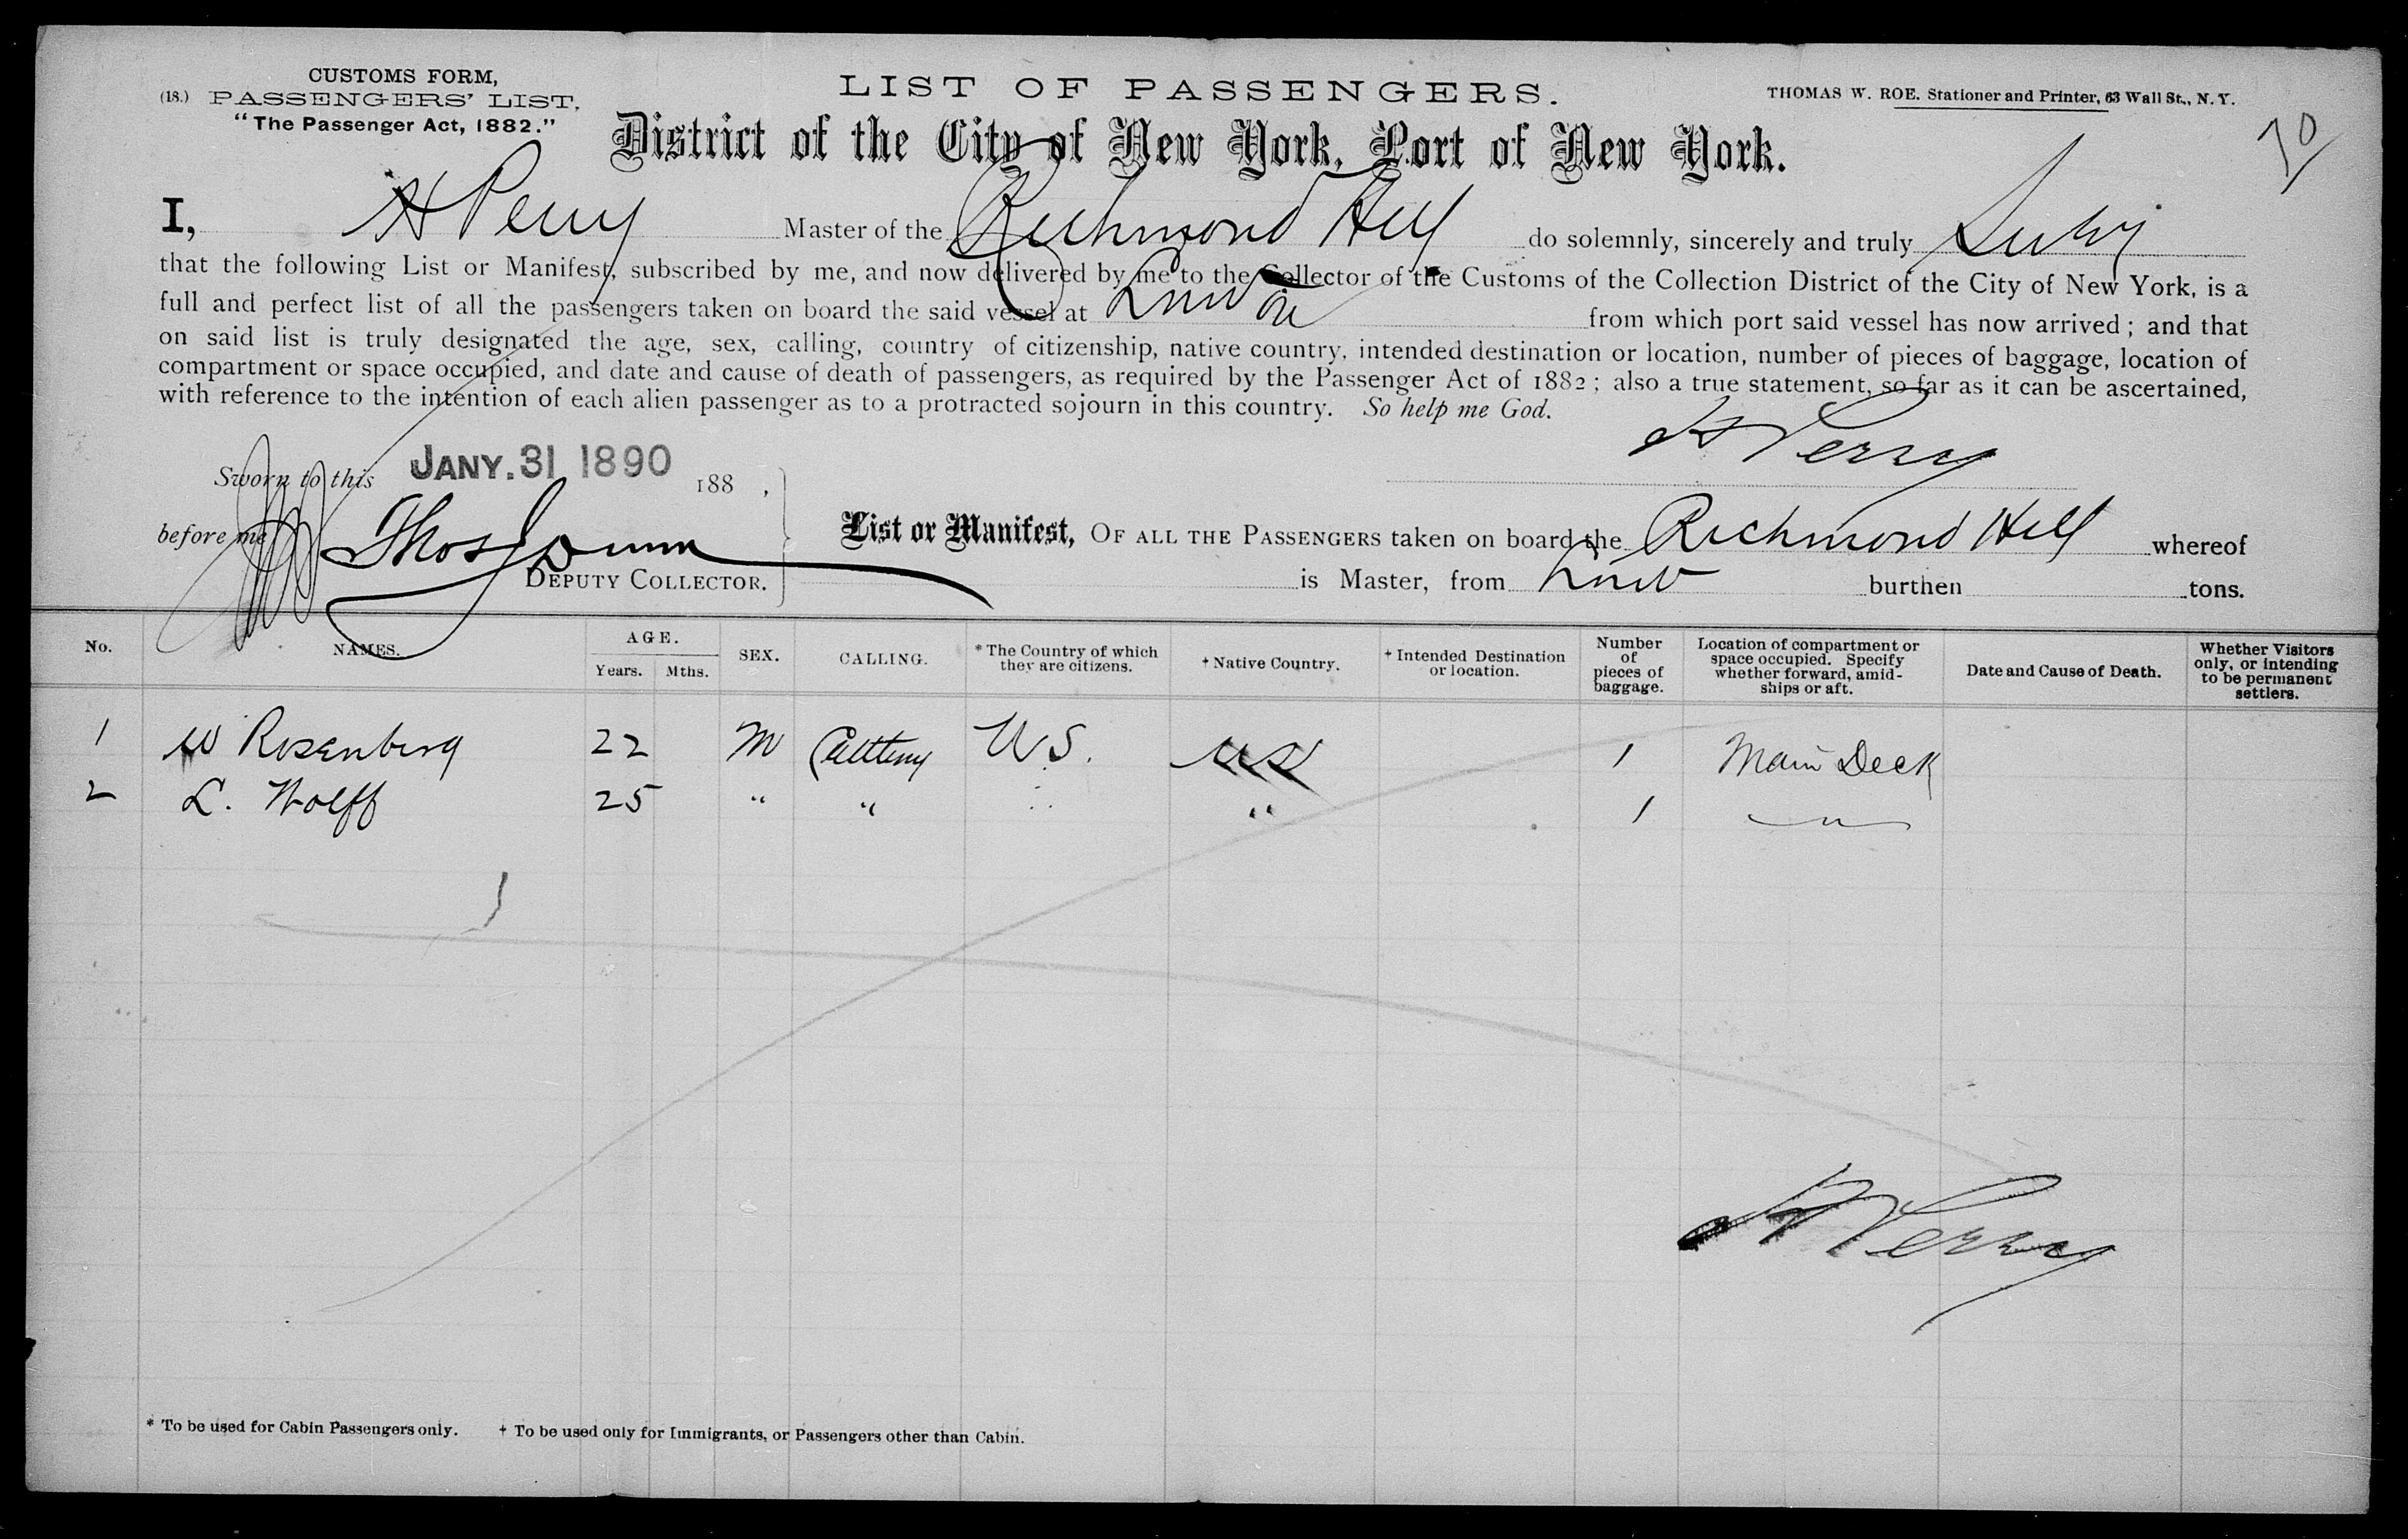 CUSTOMS FORM,
(18.) PASSENGERS' LIST,
"The Passenger Act, 1882."
LIST OF PASSENGERS.
THOMAS W. ROE. Stationer and Printer, 63 Wall St., N. Y.
70
District of the City of New York, Port of New York.
I, H Perry Master of the Richmond Hill do solemnly, sincerely and truly
that the following List or Manifest, subscribed by me, and now delivered by me to the Collector of the Customs of the Collection District of the City of New York, is a
full and perfect list of all the passengers taken on board the said vessel at London from which port said vessel has now arrived; and that
on said list is truly designated the age, sex, calling, country of citizenship, native country, intended destination or location, number of pieces of baggage, location of
compartment or space occupied, and date and cause of death of passengers, as required by the Passenger Act of 1882; also a true statement, so far as it can be ascertained,
with reference to the intention of each alien passenger as to a protracted sojourn in this country. So help me God.
H Perry
Sworn to this JANY. 31 1890 188 ,
before me Thos J Dunn
DEPUTY COLLECTOR.
List or Manifest, OF ALL THE PASSENGERS taken on board the Richmond Hill whereof
is Master, from burthen tons.
No. NAMES. AGE. Years. Mths. SEX. CALLING. * The Country of which they are citizens. † Native Country. † Intended Destination or location. Number of pieces of baggage. Location of compartment or space occupied. Specify whether forward, amidships or aft. Date and Cause of Death. Whether Visitors only, or intending to be permanent settlers.
1 W Rosenberg 22 M U S. 1 Main Deck
2 L. Wolff 25 " " " " 1 "
H Perry
* To be used for Cabin Passengers only. † To be used only for Immigrants, or Passengers other than Cabin.